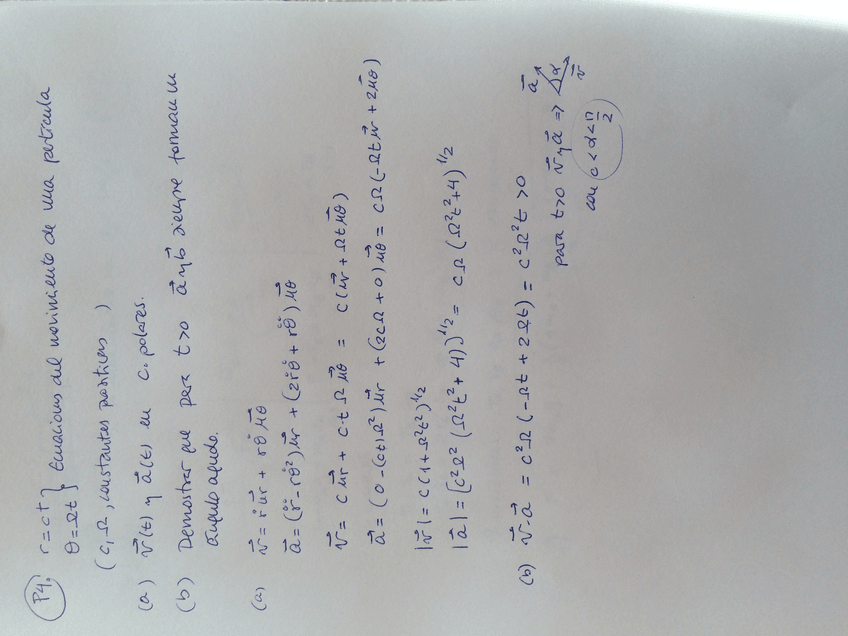 P4. r = ct } Ecuaciones del movimiento de una partícula
θ = Ωt
(c, Ω, constantes positivas)
(a) v⃗(t) y a⃗(t) en c. polares.
(b) Demostrar que para t>0 a⃗ y b⃗ siempre forman un
ángulo agudo.
(a) v⃗ = ṙ u⃗r + rθ̇ u⃗θ
a⃗ = (r̈ - rθ̇²) u⃗r + (2ṙθ̇ + rθ̈) u⃗θ
v⃗ = c u⃗r + c·t Ω u⃗θ = c(u⃗r + Ωt u⃗θ)
a⃗ = (0 - (ct)Ω²) u⃗r + (2cΩ + 0) u⃗θ = cΩ(-Ωt u⃗r + 2u⃗θ)
|v⃗| = c(1 + Ω²t²)^1/2
|a⃗| = [c²Ω²(Ω²t² + 4)]^1/2 = cΩ(Ω²t² + 4)^1/2
(b) v⃗·a⃗ = c²Ω(-Ωt + 2Ωt) = c²Ω²t > 0
para t>0 v⃗ y a⃗ => a⃗ α v⃗
con c < α < π/2